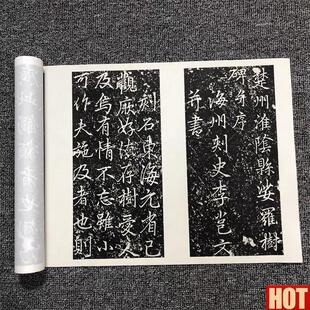 楚州淮陰縣娑羅樹
碑并序
海州刺史李邕文
并書
刻石東海元省已
觀庶好德存樹愛人
及烏有情不忘雖小
可作大施及者也則
HOT